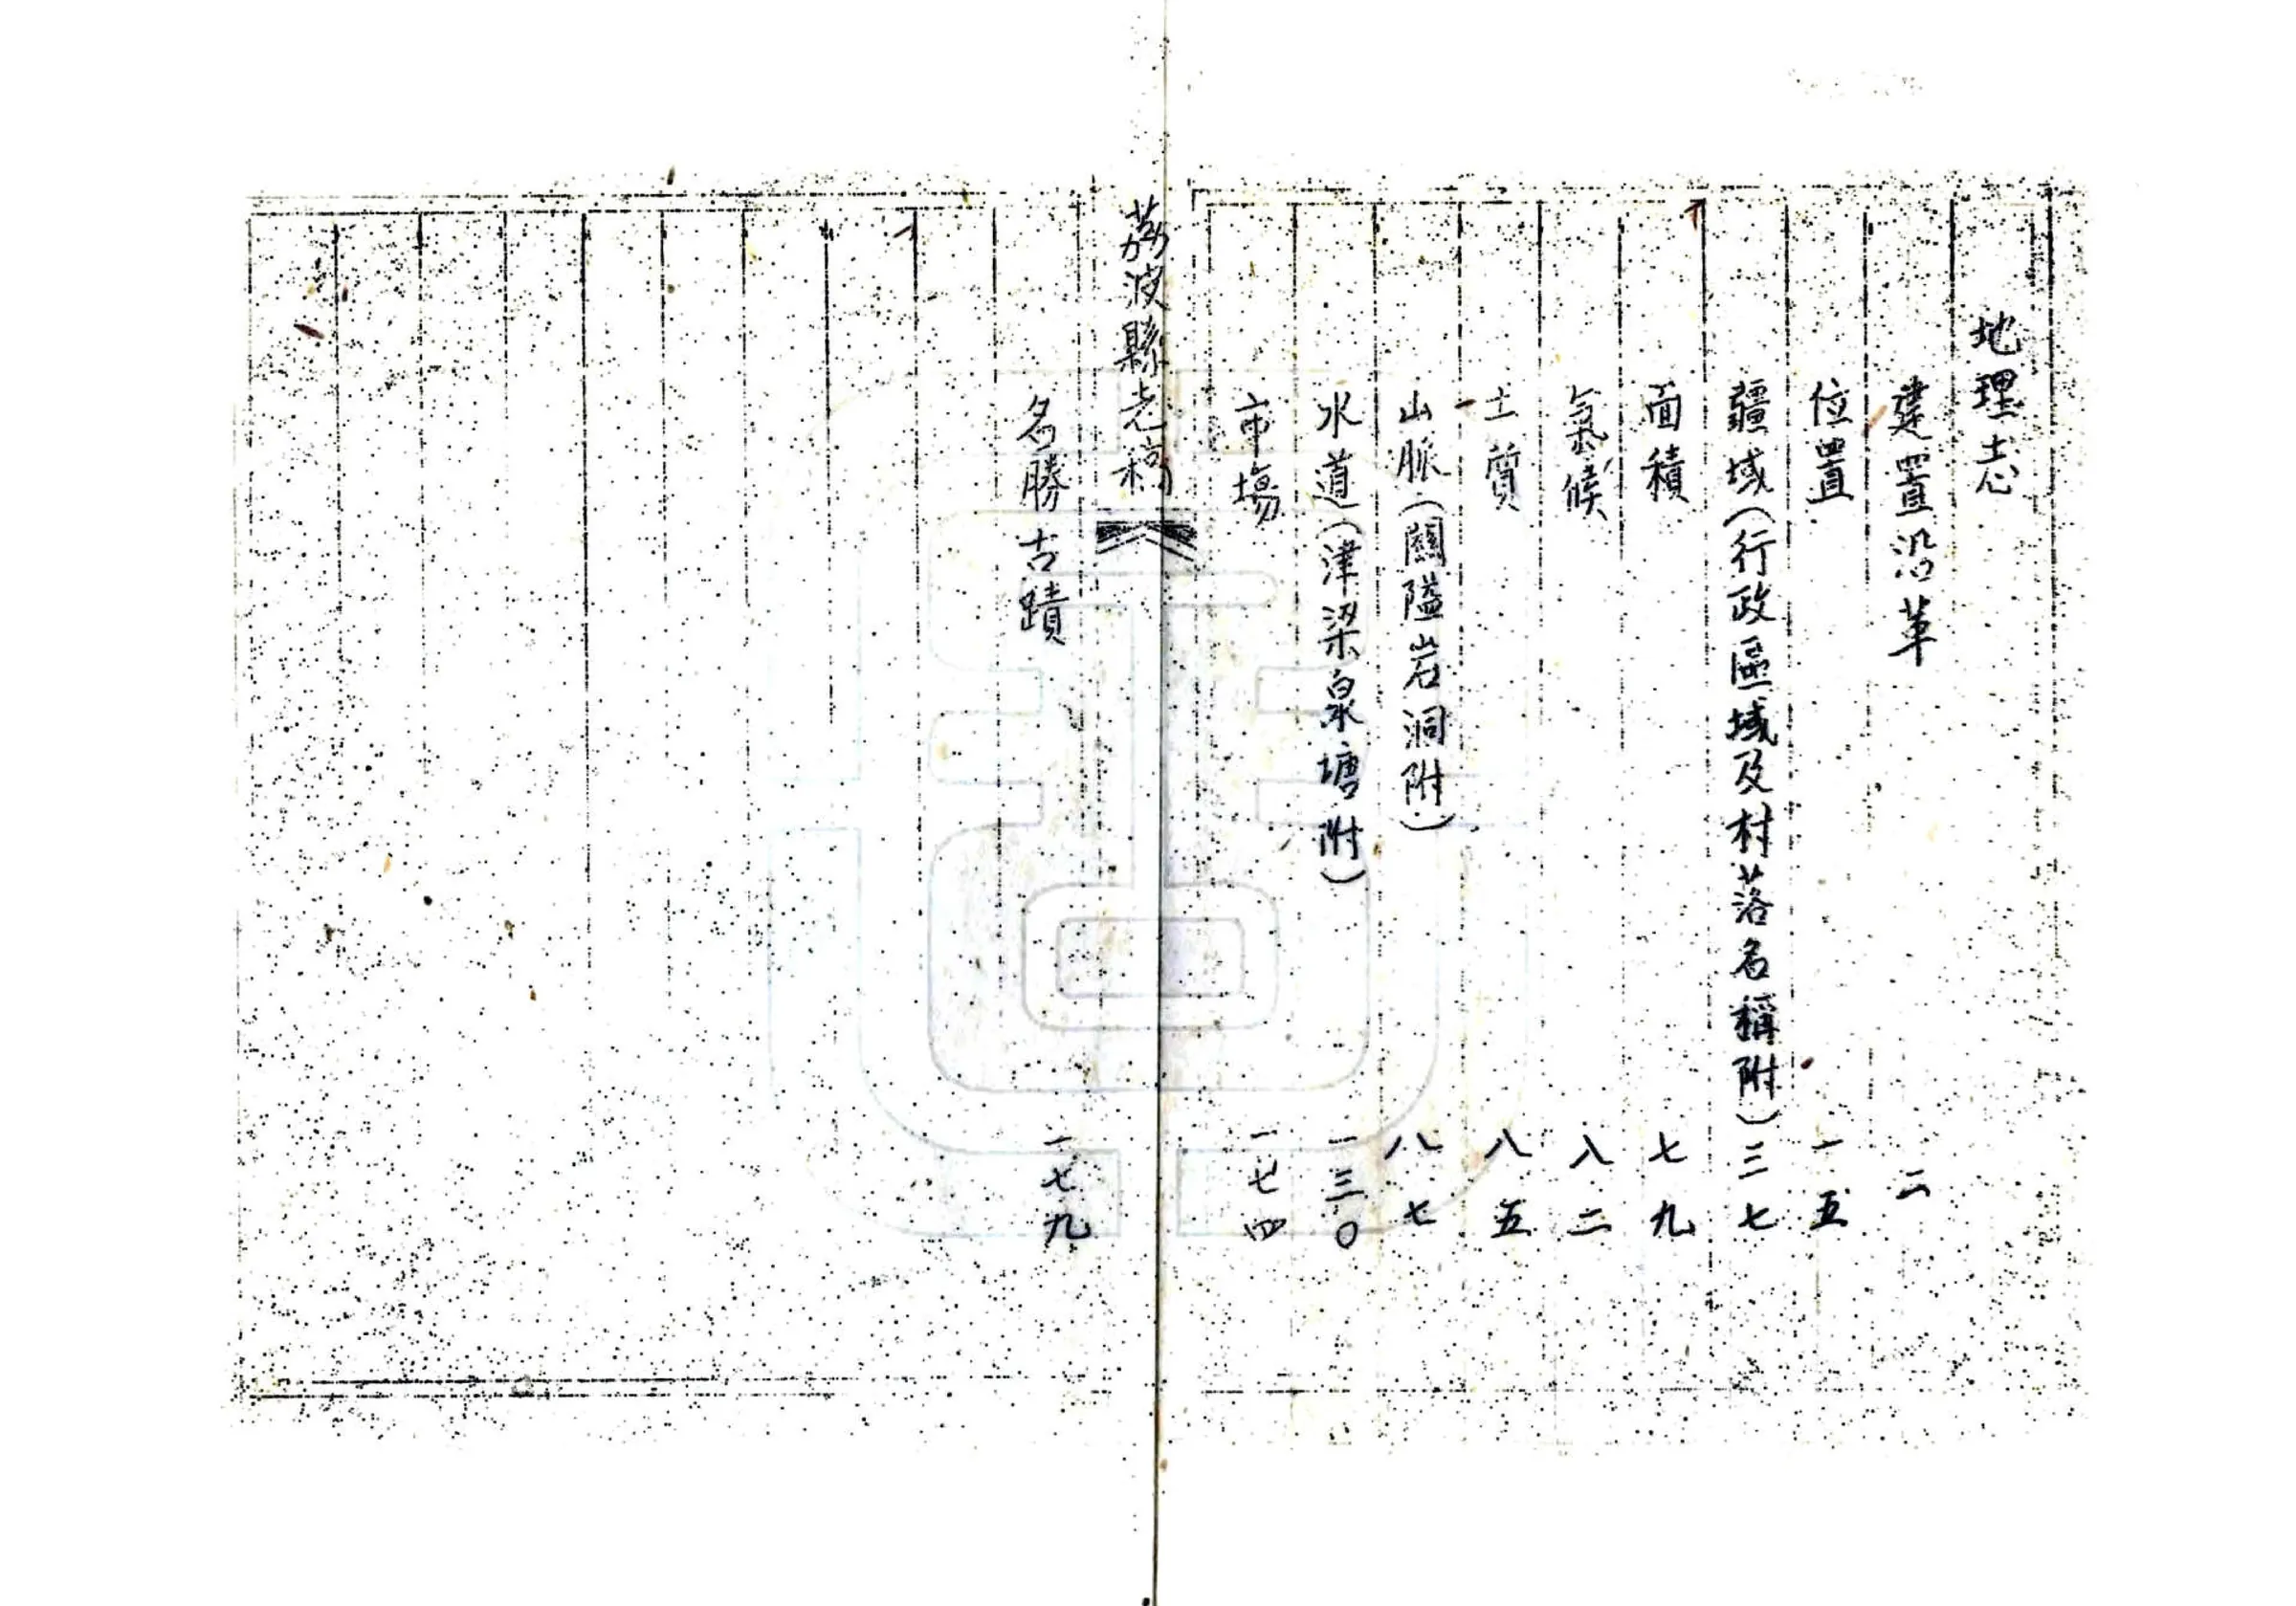 地理志
建置沿革 二
位置 一五
疆域(行政區域及村落名稱附) 三七
面積 七九
氣候 八二
土質 八五
山脈(關隘岩洞附) 八七
水道(津梁泉塘附) 一三〇
市場 一七四
荔波縣志稿
名勝古蹟 一七九